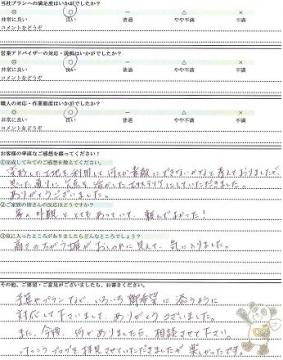 当社プランへの満足度はいかがでしたか？
◎ ○ － △ ×
非常に良い 良い 普通 やや不満 不満
コメントをどうぞ
営業アドバイザーの対応・説明はいかがでしたか？
◎ ○ － △ ×
非常に良い 良い 普通 やや不満 不満
コメントをどうぞ
職人の対応・作業態度はいかがでしたか？
◎ ○ － △ ×
非常に良い 良い 普通 やや不満 不満
コメントをどうぞ
お客様の率直なご感想を綴ってください！
①完成してみてのご感想を教えてください。
変形した土地を利用して何とか素敵にできないかなと考えておりましたが、
思った通りに欠点を活かしたエクステリアにしていただきました。
ありがとうございました。
②ご家族の皆さんの反応はどうですか？
家の外観ととてもあっていて、頼んでよかった！
③気に入ったところがありましたらどんなところでしょう？
高さのちがう塀がおしゃれに見えて、気に入りました。
その他、ご要望・ご意見がございましたら、お書きください。
手直やプランなど、いろいろ御希望に添うように
対応して下さいまして、ありがとうございました。
また、今後、何かありましたら、相談させて下さい。
ブログを拝見させていただきましたが楽しかったです。